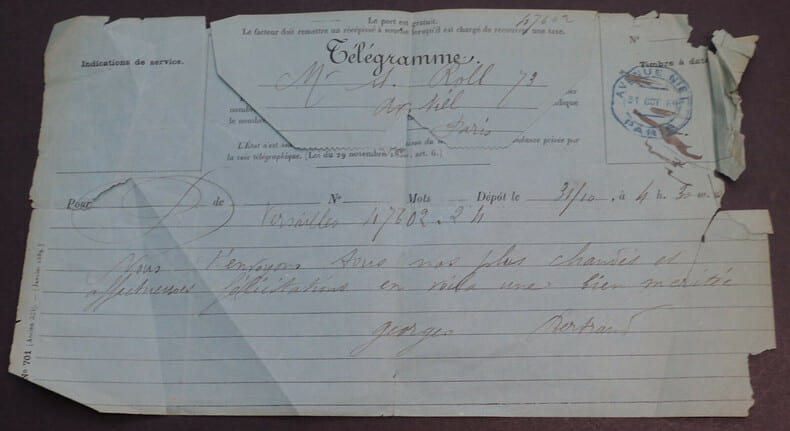 Le port est gratuit.
47602
Le facteur doit remettre un récépissé à souche lorsqu'il est chargé de recouvrer une taxe.
Indications de service.
Télégramme.
N°
Timbre à date
Mr A. Roll 73
Av. Niel
Paris
AVENUE NIEL
31 OCT
PARIS
nombre
le nombre
L'État n'est
dance privée par
la voie télégraphique. (Loi du 29 novembre 1850, art. 6.)
Pour de Versailles N° 47602. Mots 24 Dépôt le 31/10 à 4 h. 30 m.
Nous t'envoyons tous nos plus chaudes et
affectueuses félicitations en voila une bien meritée
georges Bertrand
N° 701